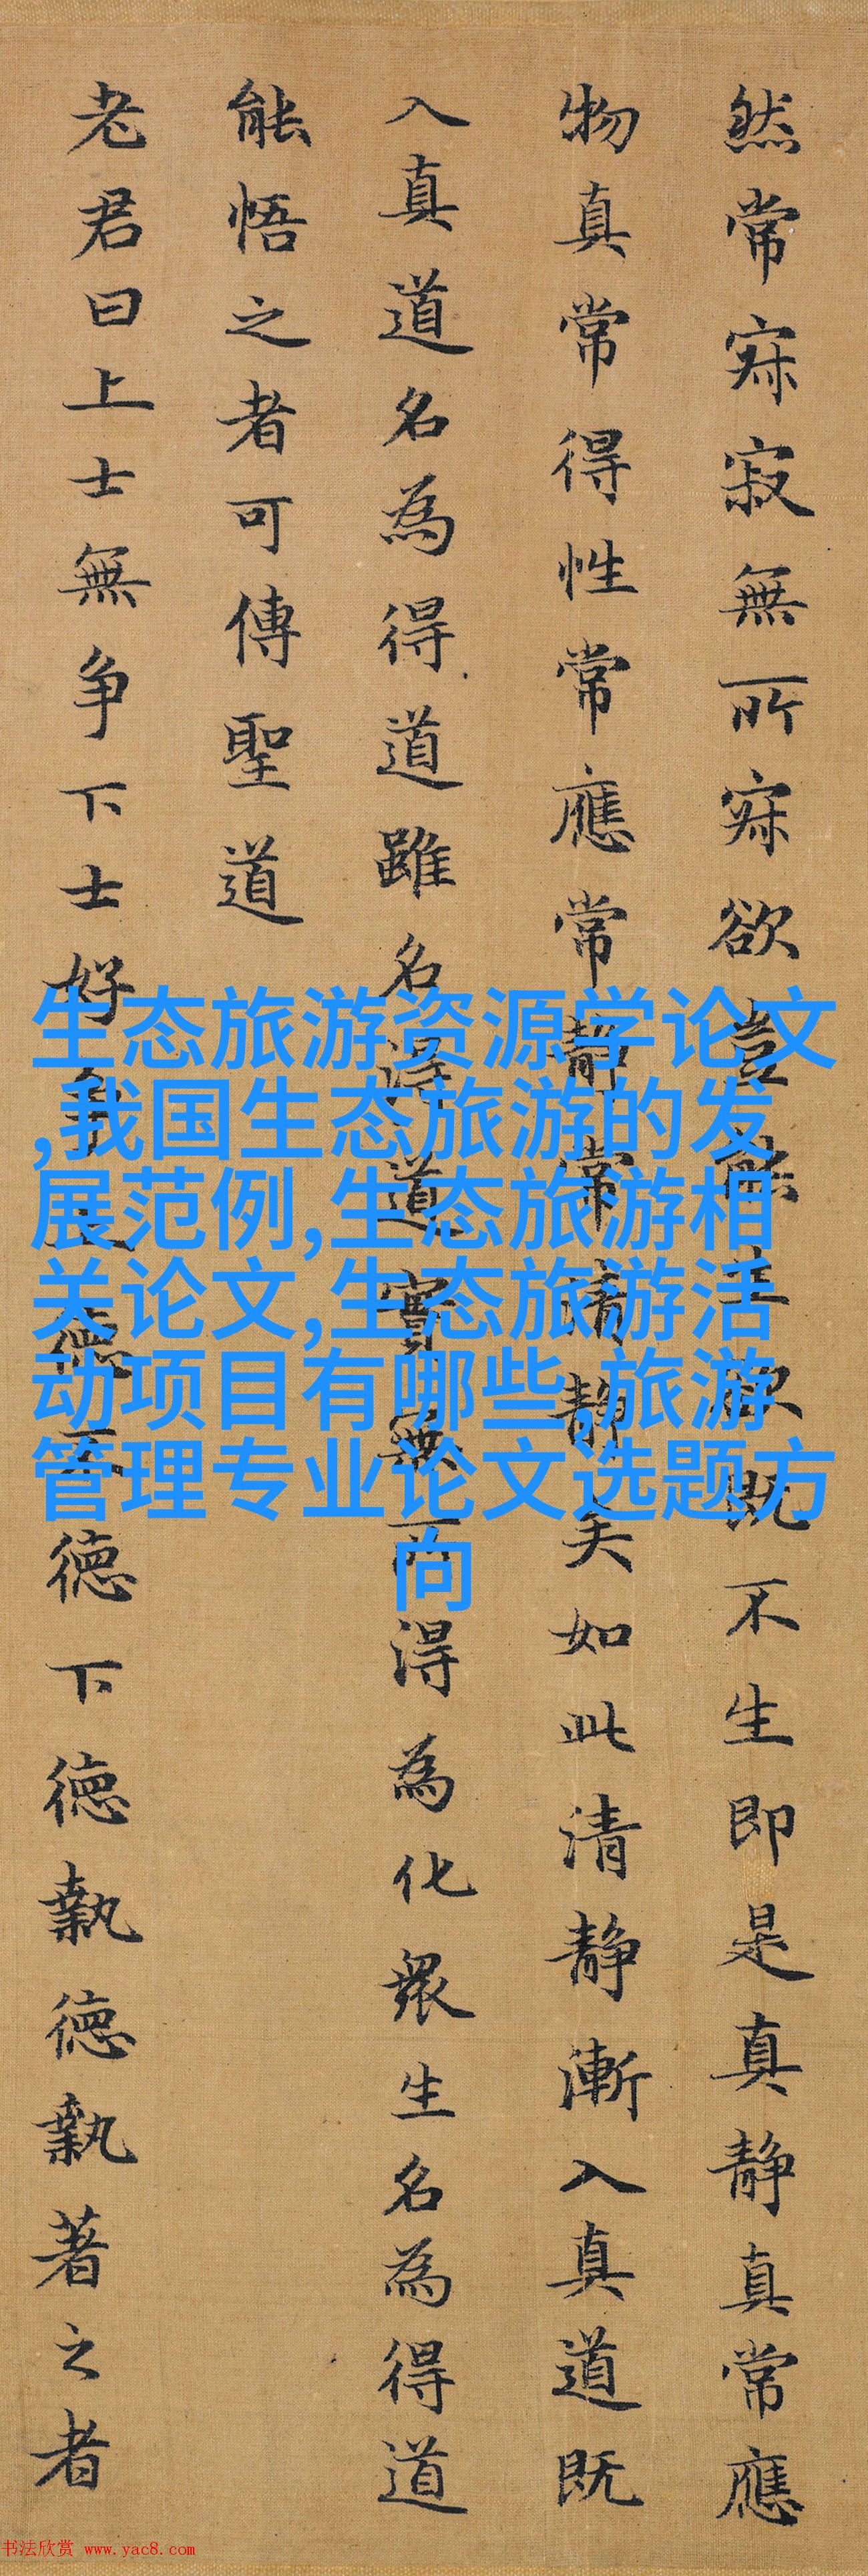 然常寂寂無所寂欲豈能生欲既不生即是真静真常應
物真常得性常應常静常清静矣如此清静漸入真道既
入真道名為得道雖名得道實無所得為化衆生名為得道
能悟之者可傳聖道
老君曰上士無争下士好争上德不德下德執德執著之者
生态旅游资源学论文
,我国生态旅游的发
展范例,生态旅游相
关论文,生态旅游活
动项目有哪些,旅游
管理专业论文选题方
向
书法欣赏 www.yac8.com